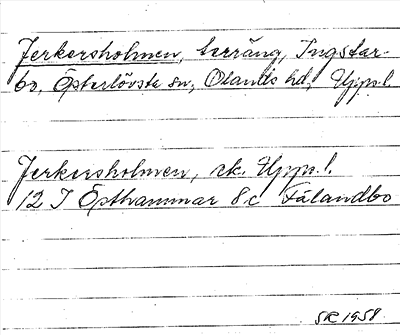 Jerkersholmen, terräng, Ingstar-
bo, Österlövsta sn, Olands hd, Uppl.
Jerkersholmen, rk. Uppl.
12 I Östhammar 8c Fålandbo
SR 1958